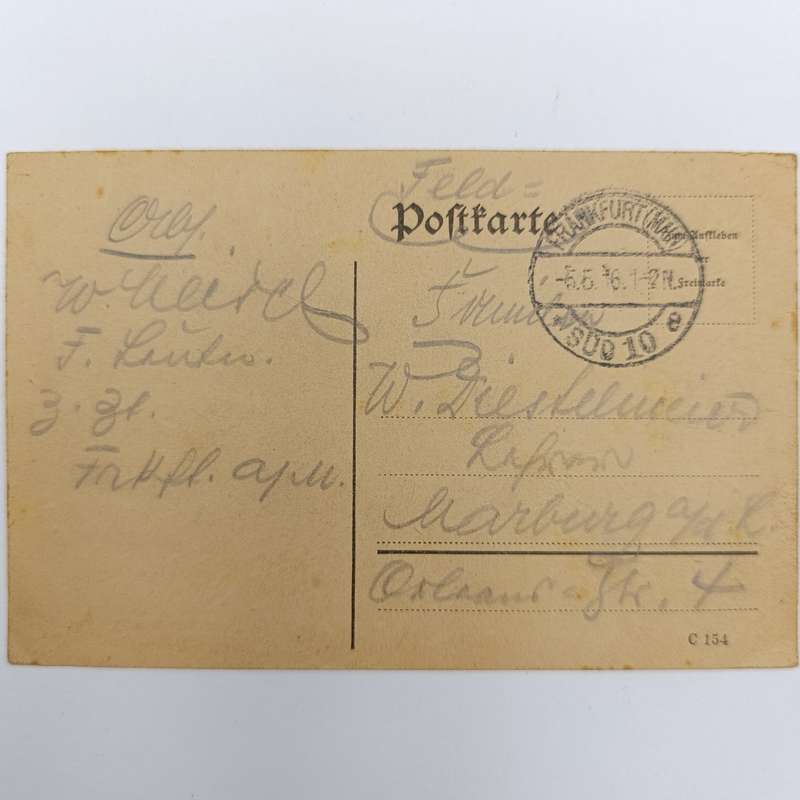 Feld=
Postkarte
FRANKFURT (MAIN)
SÜD 10 e
Zum Aufkleben
der
Freimarke
Abs.
W.
F.
z. Zt.
Frkft. a/M.
Familie
W. Diestelmeier
Lehrer
Marburg a/d L.
Orleans-Str. 4
C 154